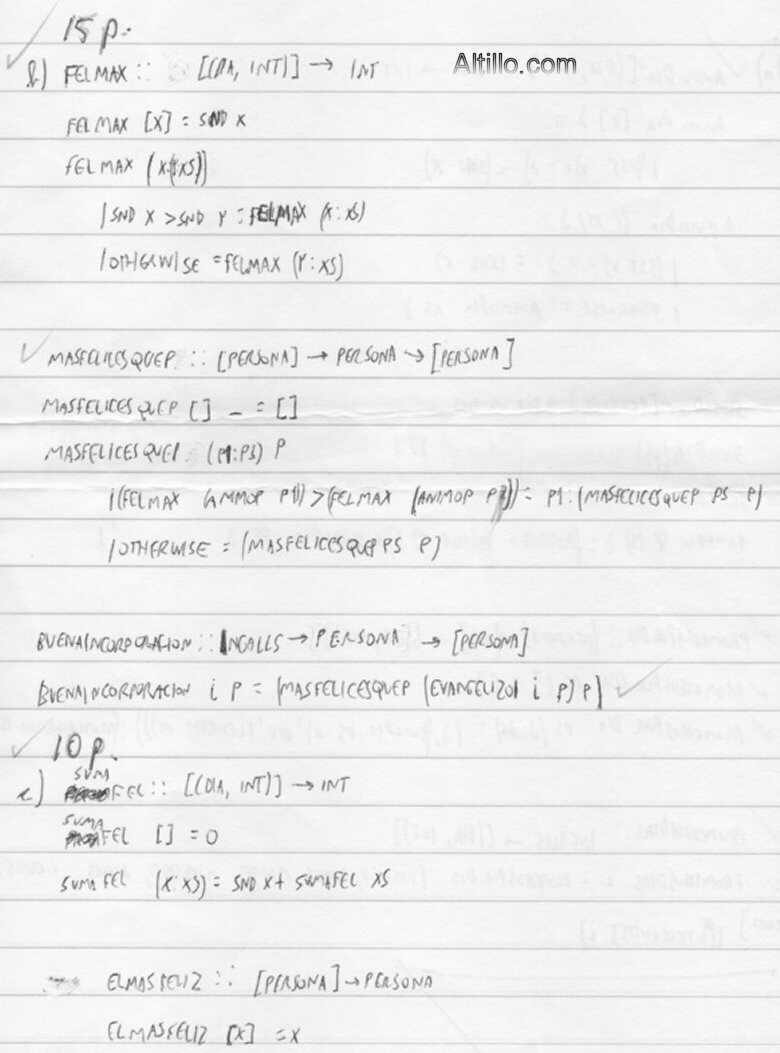 15 p.
Altillo.com
b) FELMAX :: [(DIA, INT)] → INT
FELMAX [X] = SND X
FELMAX (X:Y:XS)
| SND X > SND Y = FELMAX (X:XS)
| OTHERWISE = FELMAX (Y:XS)
MASFELICESQUEP :: [PERSONA] → PERSONA → [PERSONA]
MASFELICESQUEP [] _ = []
MASFELICESQUEP (P1:PS) P
| (FELMAX (ANIMOP P1)) > (FELMAX (ANIMOP P)) = P1 : (MASFELICESQUEP PS P)
| OTHERWISE = (MASFELICESQUEP PS P)
BUENAINCORPORACION :: INGALLS → PERSONA → [PERSONA]
BUENAINCORPORACION i P = (MASFELICESQUEP (EVANGELIZO1 i P) P)
10 p.
c) SUMAFEL :: [(DIA, INT)] → INT
SUMAFEL [] = 0
SUMAFEL (X:XS) = SND X + SUMAFEL XS
ELMASFELIZ :: [PERSONA] → PERSONA
ELMASFELIZ [X] = X